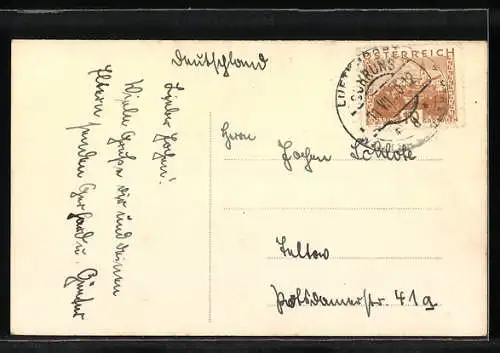 Deutschland
Lieber Jochen!
Viele Grüße dir und deinen
Eltern senden Gerhard u. Günter
Herrn
Jochen Schlote
Teltow
Potsdamerstr. 41a
ÖSTERREICH
LUFTKURORT
SCHRUNS